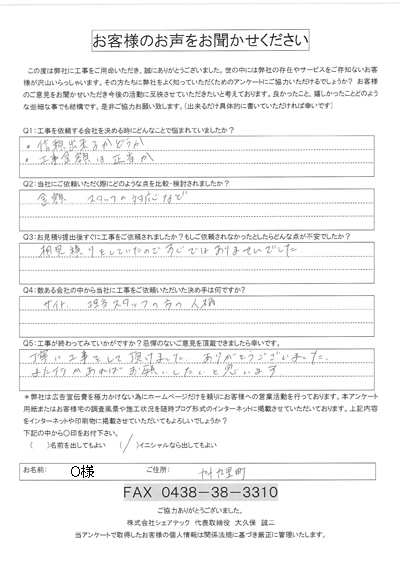 お客様のお声をお聞かせください
この度は弊社に工事をご用命いただき、誠にありがとうございました。世の中には弊社の存在やサービスをご存知ないお客
様が沢山いらっしゃいます。その方たちに弊社をよく知っていただくためのアンケートにご協力いただけるでしょうか? お客様
のご意見をお聞かせいただき今後の活動に反映させていただきたいと考えております。良かったこと、嬉しかったことどのよう
な些細な事でも結構です。是非ご協力お願い致します。(出来るだけ具体的に書いていただければ幸いです)
Q1:工事を依頼する会社を決める時にどんなことで悩まれていましたか?
・信頼出来るかどうか
・工事金額は正当か
Q2:当社にご依頼いただく際にどのような点を比較・検討されましたか?
金額 スタッフの対応など
Q3:お見積り提出後すぐに工事をご依頼されましたか?もしご依頼されなかったとしたらどんな点が不安でしたか?
相見積りをしていたのですぐではありませんでした
Q4:数ある会社の中から当社に工事をご依頼いただいた決め手は何ですか?
サイト、担当スタッフの方の人柄
Q5:工事が終わってみていかがですか?忌憚のないご意見を頂戴できましたら幸いです。
丁寧に工事をして頂けました。ありがとうございました。
また何かあればお願いしたいと思います
*弊社は広告宣伝費を極力かけない為にホームページだけを頼りにお客様への営業活動を行っております。本アンケート
用紙またはお客様宅の調査風景や施工状況を随時ブログ形式のインターネットに掲載させていただいております。上記内容
をインターネットや印刷物に掲載させていただいてもよろしいでしょうか?
下記の中から○印をお付下さい。
( )名前を出してもよい ( )イニシャルなら出してもよい
お名前: O様 ご住所:
FAX 0438-38-3310
ご協力ありがとうございました。
株式会社シェアテック 代表取締役 大久保 誠二
当アンケートで取得したお客様の個人情報は関係法規に基づき厳正に管理いたします。